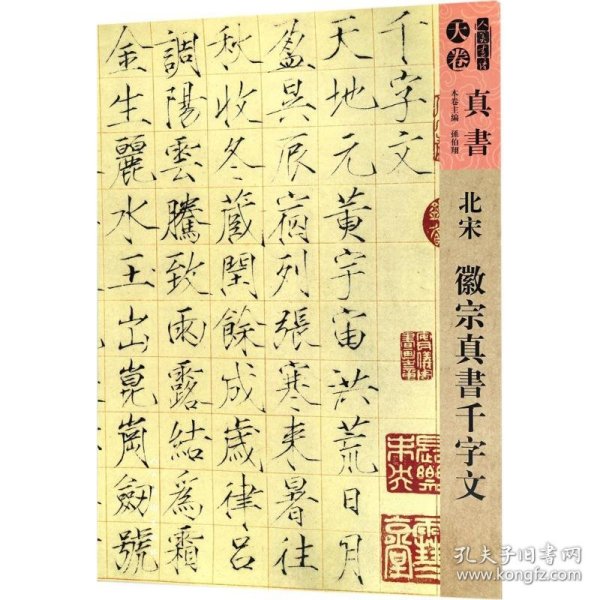 人美書譜
天卷
真書
本卷主編 孫伯翔
北宋
徽宗真書千字文
千字文
天地元黃宇宙洪荒日月
盈昃辰宿列張寒来暑往
秋收冬蔵閏餘成歳律呂
調陽雲騰致雨露結為霜
金生麗水玉出崑崗劔號
孔夫子旧书网
www.kongfz.com